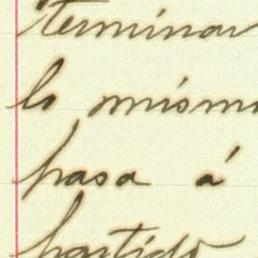 terminar
lo mismo
pasa á
partido